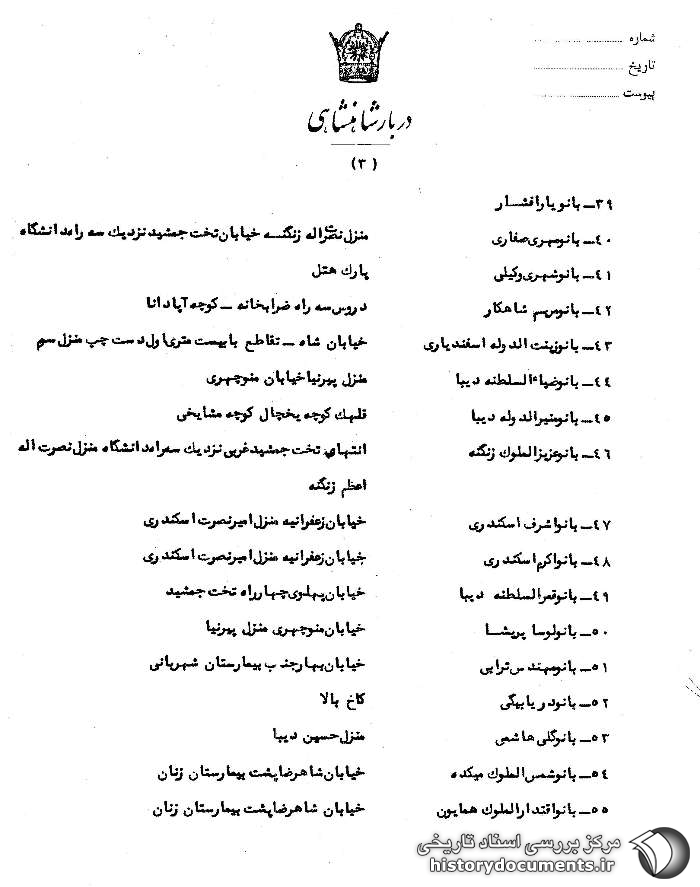 شماره
تاریخ
پیوست
دربار شاهنشاهی
(۳)
۳۹ـ بانو یار افشار
۴۰ـ بانو مهری صفاری منزل نصرت اله زنگنه خیابان تخت جمشید نزدیك سه راه دانشگاه
۴۱ـ بانو شهری وکیلی پارك هتل
۴۲ـ بانو مریم شاهکار دروس سه راه ضرابخانه ـ کوچه آپادانا
۴۳ـ بانو زینت الدوله اسفندیاری خیابان شاه ـ تقاطع با بیست متری اول دست چپ منزل سوم
۴۴ـ بانو ضیاء السلطنه دیبا منزل پیرنیا خیابان منوچهری
۴۵ـ بانو منیر الدوله دیبا قلهك کوچه یخچال کوچه مشایخی
۴۶ـ بانو عزیز الملوك زنگنه انتهای تخت جمشید غربی نزدیك سه راه دانشگاه منزل نصرت اله
اعظم زنگنه
۴۷ـ بانو اشرف اسکندری خیابان زعفرانیه منزل امیر نصرت اسکندری
۴۸ـ بانو اکرم اسکندری خیابان زعفرانیه منزل امیر نصرت اسکندری
۴۹ـ بانو قمر السلطنه دیبا خیابان پهلوی چهار راه تخت جمشید
۵۰ـ بانو لوسا پریشا خیابان منوچهری منزل پیرنیا
۵۱ـ بانو مهندس ترابی خیابان بهار جنب بیمارستان شهربانی
۵۲ـ بانو دریابیگی کاخ بالا
۵۳ـ بانو گلی هاشمی منزل حسین دیبا
۵۴ـ بانو شمس الملوك میکده خیابان شاهرضا پشت بیمارستان زنان
۵۵ـ بانو اقتدار الملوك همایون خیابان شاهرضا پشت بیمارستان زنان
مرکز بررسی اسناد تاریخی
historydocuments.ir